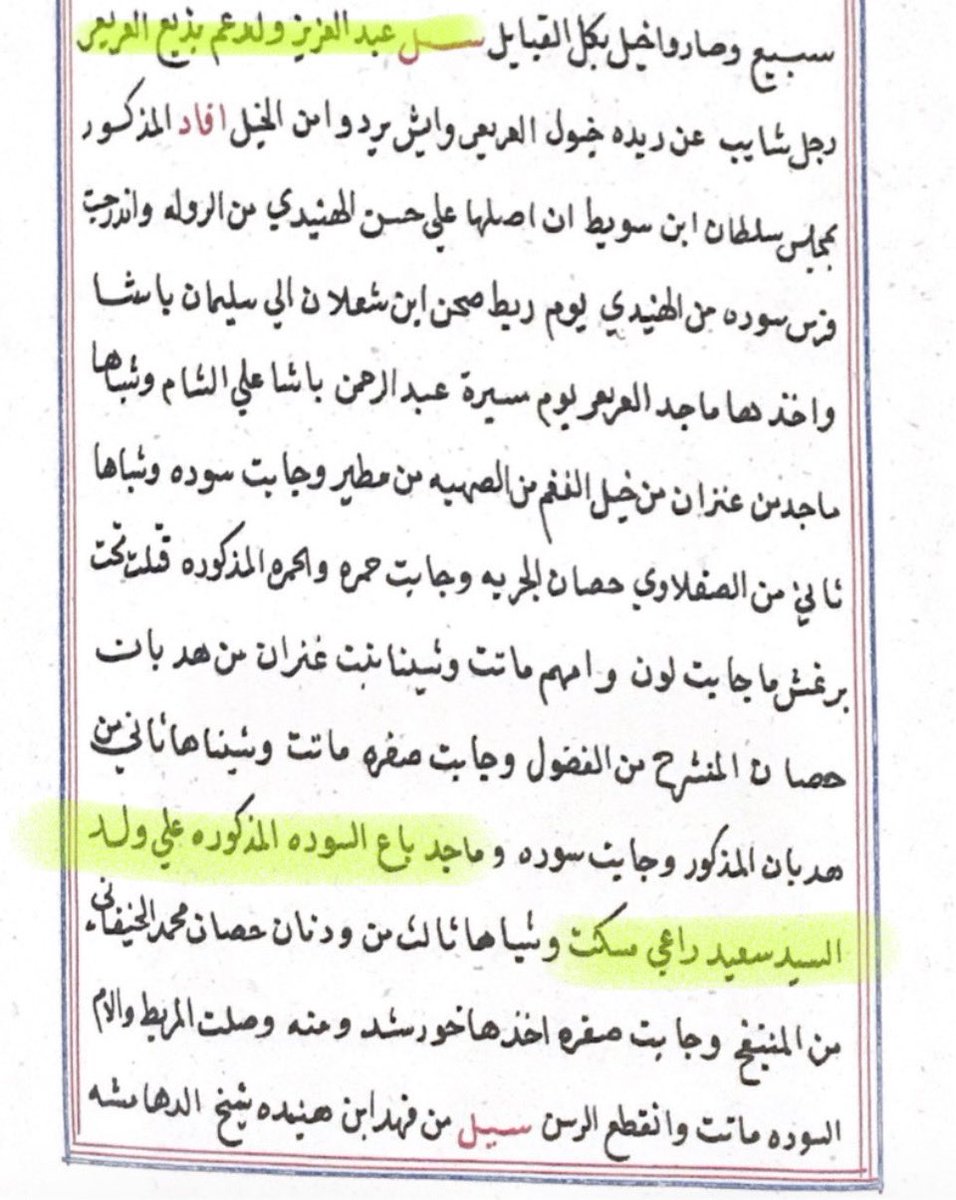 سبيع وصاروا خيل بكل القبايل سئل عبد العزيز ولد عم بذيع العريعر
رجل شايب عن ربده خيول العريعر وايش يردوا من الخيل افاد المذكور
بمجلس سلطان ابن سويط ان اصلها علي حسن الهنيدي من الروله واندرجت
فرس سوده من الهنيدي يوم ربط صحن ابن شعلان الي سليمان باشا
واخذها ماجد العريعر يوم سيرة عبد الرحمن باشا علي الشام وشباها
ماجد من عنزان من خيل الفغم من الصهبه من مطير وجابت سوده وشباها
ثاني من الصقلاوي حصان الجربه وجابت حمره والحمره المذكوره قتلت تحت
برغش ما جابت لون وامهم ماتت وشبينا بنت عنزان من هدبان
حصان المنشرح من الفضول وجابت صفره ماتت وشبيناها ثاني من
هدبان المذكور وجابت سوده وماجد باع السوده المذكوره علي ولد
السيد سعيد راعي مسكت وشباها ثالث من ودنان حصان محمد الخنيفاني
من المنتفج وجابت صفره اخذها خورشد ومنه وصلت المربط والام
السوده ماتت وانقطع الرسن سيل من فهد ابن هنيده شيخ الدهامشه